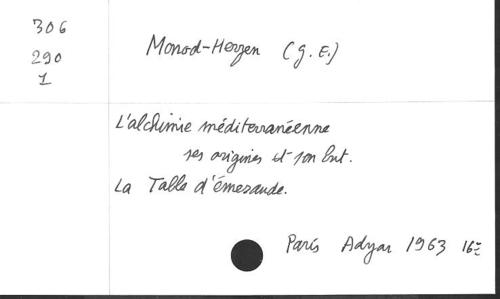 306
290
1
Monod-Herzen (G. E.)
L'alchimie méditerranéenne
ses origines et son but.
La Table d'émeraude.
Paris Adyar 1963 16º